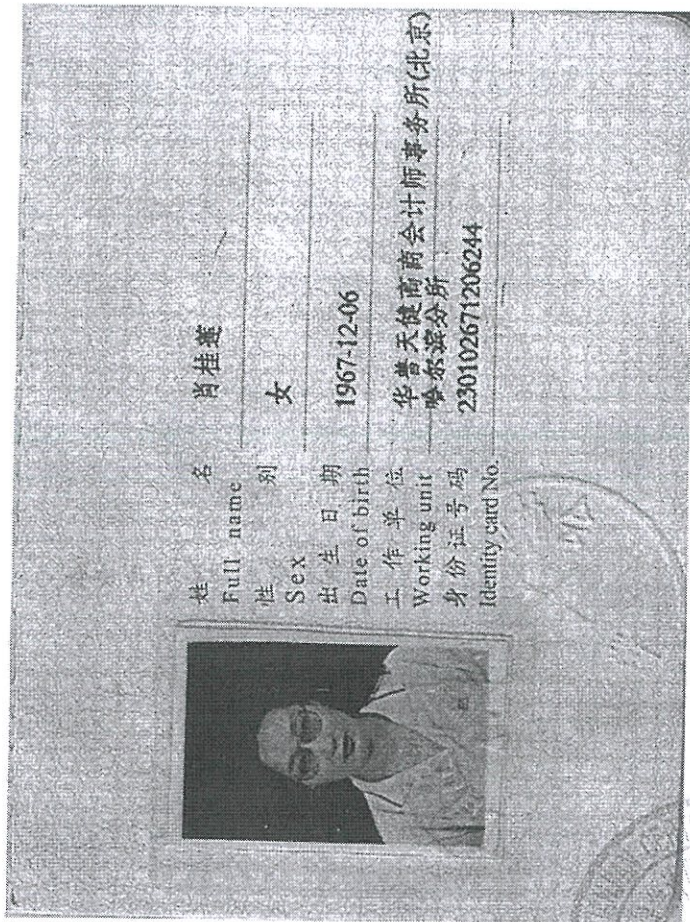 姓 名 肖桂莲
Full name
性 别 女
Sex
出 生 日 期 1967-12-06
Date of birth
工 作 单 位 华普天健高商会计师事务所(北京)
Working unit 哈尔滨分所
身份证号码 230102671206244
Identity card No.